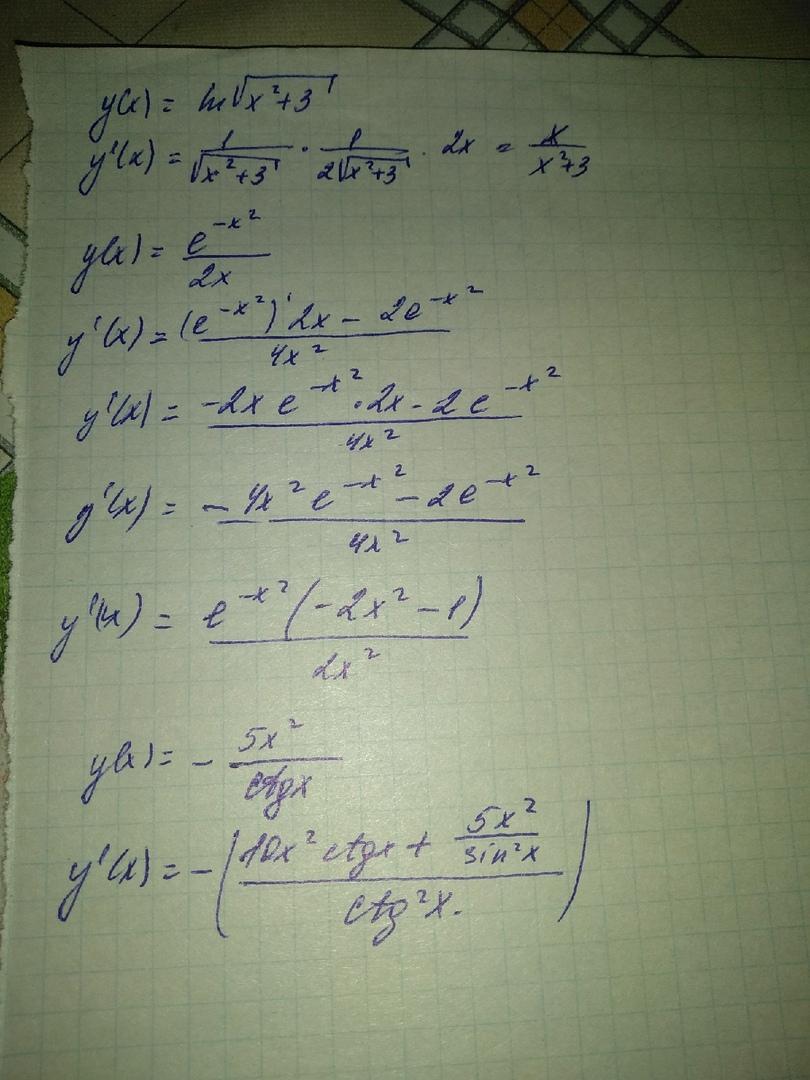 y(x) = ln√(x²+3)
y'(x) = 1/√(x²+3) · 1/(2√(x²+3)) · 2x = x/(x²+3)
y(x) = e^(-x²)/(2x)
y'(x) = ((e^(-x²))' 2x - 2e^(-x²))/(4x²)
y'(x) = (-2x e^(-x²) · 2x - 2e^(-x²))/(4x²)
y'(x) = (-4x² e^(-x²) - 2e^(-x²))/(4x²)
y'(x) = (e^(-x²) (-2x² - 1))/(2x²)
y(x) = - 5x²/(ctgx)
y'(x) = - ((10x² ctgx + 5x²/(sin²x))/(ctg²x.))